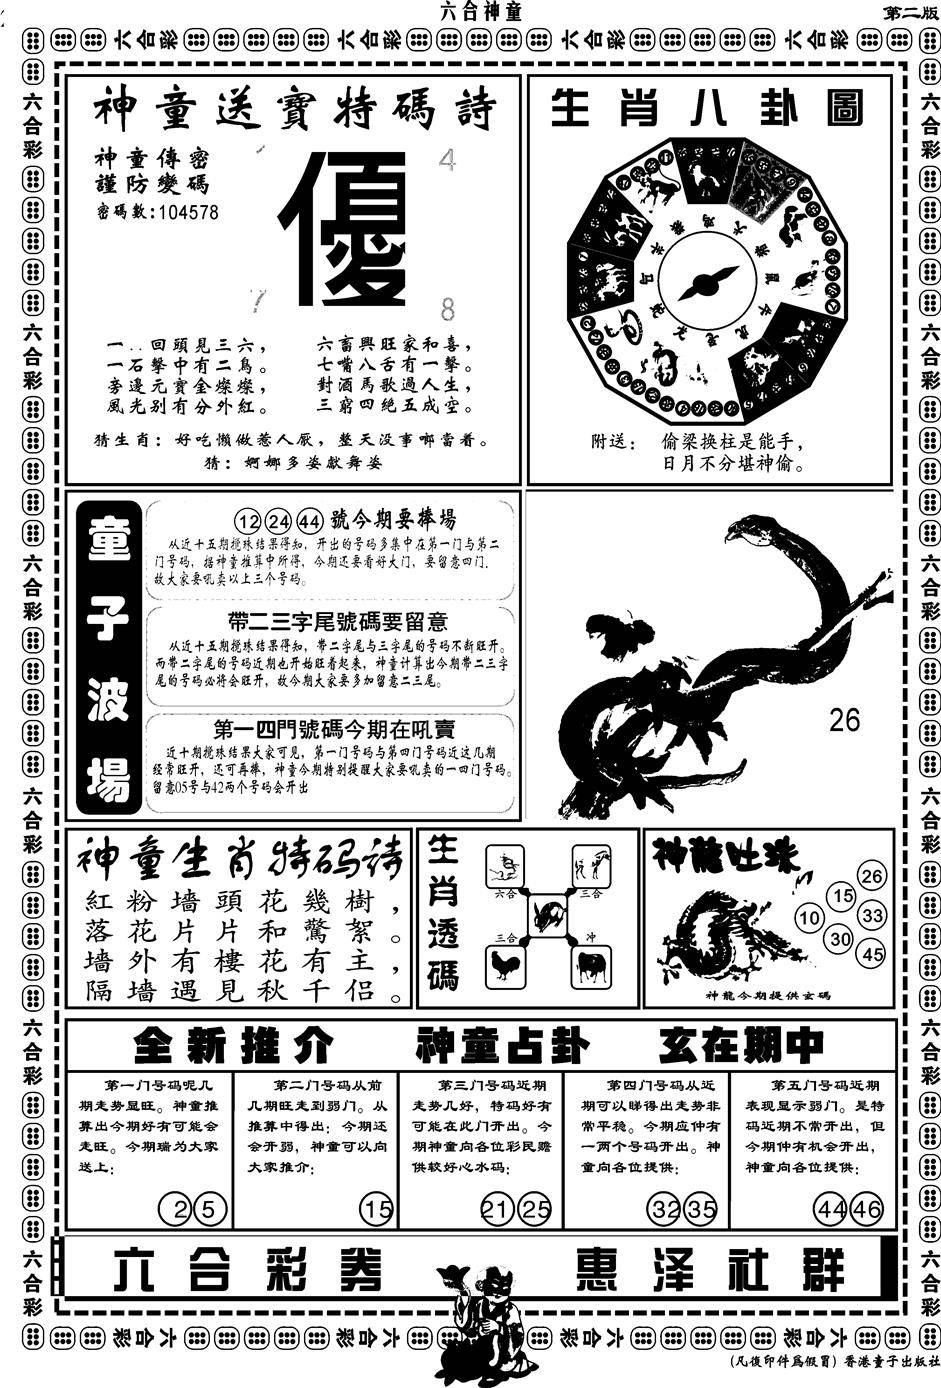 六合神童
第二版
六合彩 六合彩 六合彩 六合彩
神童送寶特碼詩
神童傳密
謹防變碼
密碼數:104578
優
4
7
8
一..回頭見三六，
一石擊中有二鳥。
旁邊元寶金燦燦，
風光别有分外紅。
六畜興旺家和喜，
七嘴八舌有一擊。
對酒馬歌過人生，
三窮四絕五成空。
猜生肖：好吃懒做惹人厭，整天没事啷當着。
猜：婀娜多姿献舞姿
生肖八卦圖
附送：
偷梁换柱是能手，
日月不分堪神偷。
童子波場
12 24 44 號今期要棒場
从近十五期搅珠结果得知，开出的号码多集中在第一门与第二
门号码，据神童推算中所得，今期还要看好大门，要留意四门.
故大家要吼卖以上三个号码。
帶二三字尾號碼要留意
从近十五期搅珠结果得知，带二字尾与三字尾的号码不断旺开。
而带二字尾的号码近期也开始旺着起来，神童计算出今期带二三字
尾的号码必将会旺开，故今期大家要多加留意二三尾。
第一四門號碼今期在吼賣
近十期搅珠结果大家可见，第一门号码与第四门号码近这几期
经常旺开，还可再棒，神童今期特别提醒大家要吼卖的一四门号码。
留意05号与42两个号码会开出
26
神童生肖特码诗
紅粉墙頭花幾樹，
落花片片和驚絮。
墙外有樓花有主，
隔墙遇見秋千侣。
生肖透碼
六合
三合
三合
冲
神龍吐珠
26
15
10
33
30
45
神龍今期提供玄碼
全新推介 神童占卦 玄在期中
第一门号码呢几
期走势显旺。神童推
算出今期好有可能会
走旺。今期瑞为大家
送上：
2 5
第二门号码从前
几期旺走到弱门。从
推算中得出：今期还
会开弱，神童可以向
大家推介：
15
第三门号码近期
走势几好，特码好有
可能在此门开出。今
期神童向各位彩民赠
供较好心水码：
21 25
第四门号码从近
期可以睇得出走势非
常平稳。今期应仲有
一两个号码开出。神
童向各位提供：
32 35
第五门号码近期
表现显示弱门。是特
码近期不常开出，但
今期仲有机会开出，
神童向各位提供：
44 46
六合彩券 惠泽社群
六合彩 六合彩 六合彩 六合彩
(凡復印件爲假冒) 香港童子出版社